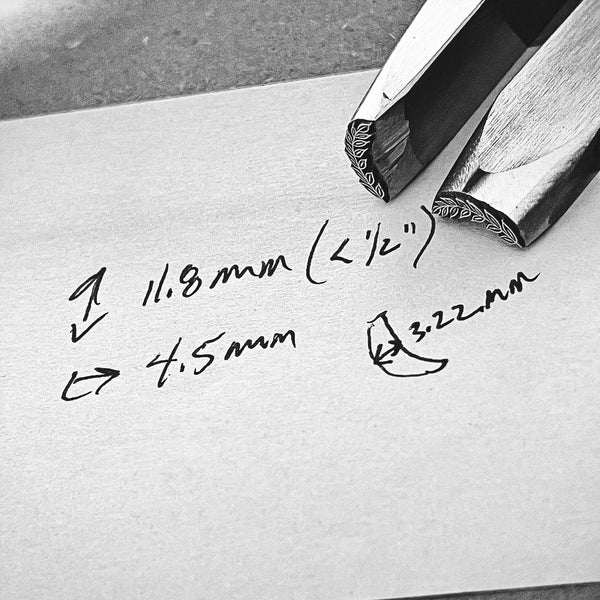 ↕ 11.8mm (< 1/2")
↔ 4.5mm
3.22mm